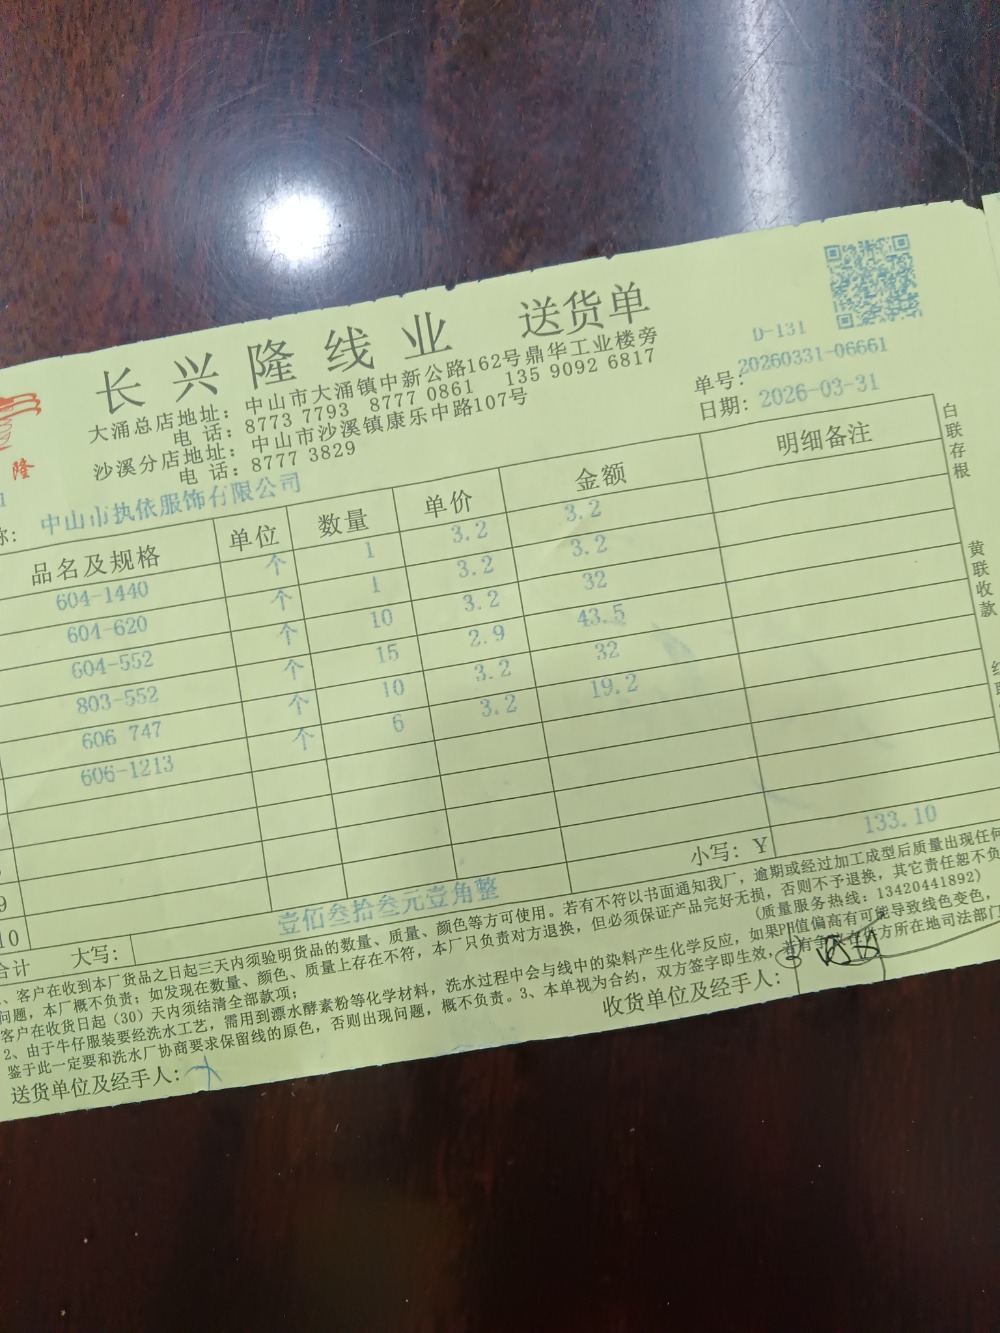 长兴隆线业 送货单
D-131
大涌总店地址：中山市大涌镇中新公路162号鼎华工业楼旁
电 话：8773 7793 8777 0861 135 9092 6817
单号：20260331-06661
沙溪分店地址：中山市沙溪镇康乐中路107号
日期：2026-03-31
电 话：8777 3829
隆
称：中山市执依服饰有限公司
品名及规格 单位 数量 单价 金额 明细备注
604-1440 个 1 3.2 3.2
604-620 个 1 3.2 3.2
604-552 个 10 3.2 32
803-552 个 15 2.9 43.5
606 747 个 10 3.2 32
606-1213 个 6 3.2 19.2
9
10
合计 大写：壹佰叁拾叁元壹角整 小写：Y 133.10
、客户在收到本厂货品之日起三天内须验明货品的数量、质量、颜色等方可使用。若有不符以书面通知我厂，逾期或经过加工成型后质量出现任何
问题，本厂概不负责；如发现在数量、颜色、质量上存在不符，本厂只负责对方退换，但必须保证产品完好无损，否则不予退换，其它责任恕不负
客户在收货日起（30）天内须结清全部款项；
(质量服务热线：13420441892)
2、由于牛仔服装要经洗水工艺，需用到漂水酵素粉等化学材料，洗水过程中会与线中的染料产生化学反应，如果PH值偏高有可能导致线色变色，
鉴于此一定要和洗水厂协商要求保留线的原色，否则出现问题，概不负责。3、本单视为合约，双方签字即生效，若有争议在供方所在地司法部门
送货单位及经手人：
收货单位及经手人：
白联存根
黄联收款